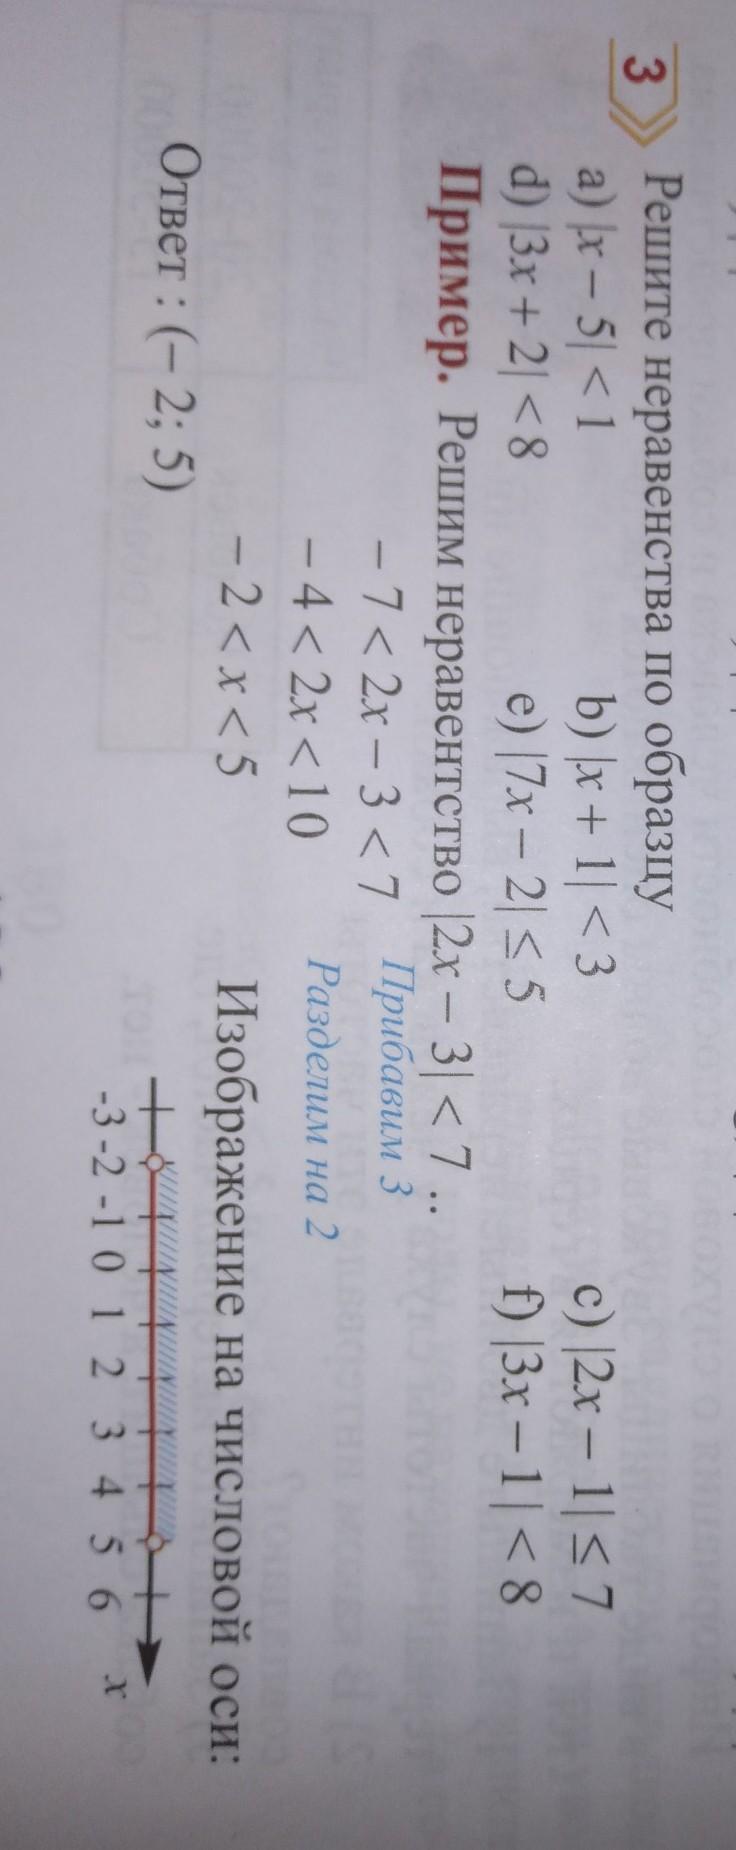 3 Решите неравенства по образцу
a) |x – 5| < 1 b) |x + 1| < 3 c) |2x – 1| ≤ 7
d) |3x + 2| < 8 e) |7x – 2| ≤ 5 f) |3x – 1| < 8
Пример. Решим неравентство |2x – 3| < 7 ..
– 7 < 2x – 3 < 7 Прибавим 3
– 4 < 2x < 10 Разделим на 2
– 2 < x < 5 Изображение на числовой оси:
Ответ : (– 2; 5)
-3 -2 -1 0 1 2 3 4 5 6 x